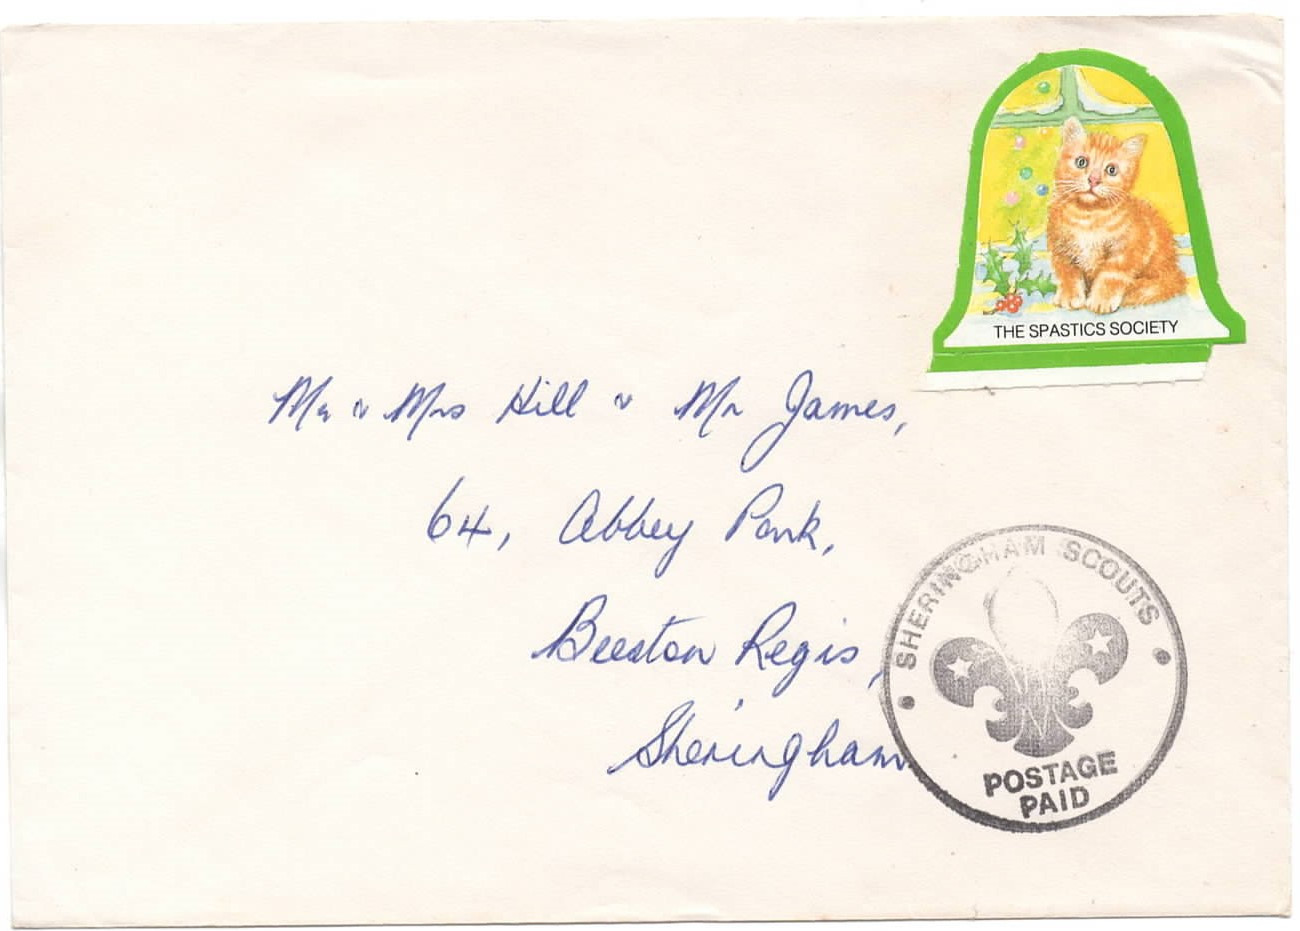 THE SPASTICS SOCIETY
Mr & Mrs Hill & Mr James,
64, Abbey Park,
Beeston Regis,
Sheringham
SHERINGHAM SCOUTS
POSTAGE
PAID